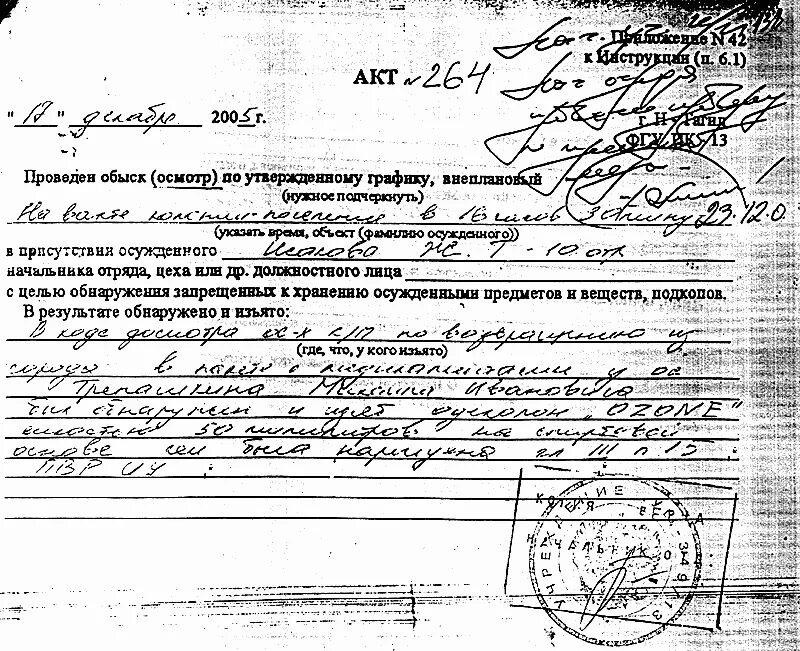 Приложение N 42
к Инструкции (п. 6.1)
АКТ N 264
г. Н-Тагил
" 17 " декабря 2005 г.
ФГУ ИК- 13
Проведен обыск (осмотр) по утвержденному графику, внеплановый
(нужное подчеркнуть)
На вахте колонии-поселения в 16 часов 30 минут
23.12.0
(указать время, объект (фамилию осужденного))
в присутствии осужденного Исакова Ж. Т - 10 отр
начальника отряда, цеха или др. должностного лица
с целью обнаружения запрещенных к хранению осужденными предметов и веществ, подкопов.
В результате обнаружено и изъято:
В ходе досмотра ос-х к/п по возвращению из
(где, что, у кого изъято)
города в пакете с медикаментами у ос
Трепашкина Михаила Ивановича
был обнаружен и изъят одеколон "OZONE"
емкостью 50 миллилитров на спиртовой
основе чем была нарушена гл III п 15
ПВР ИУ
КОПИЯ ВЕРНА
НАЧАЛЬНИК О
УЧРЕЖДЕНИЕ УЩ-349/13